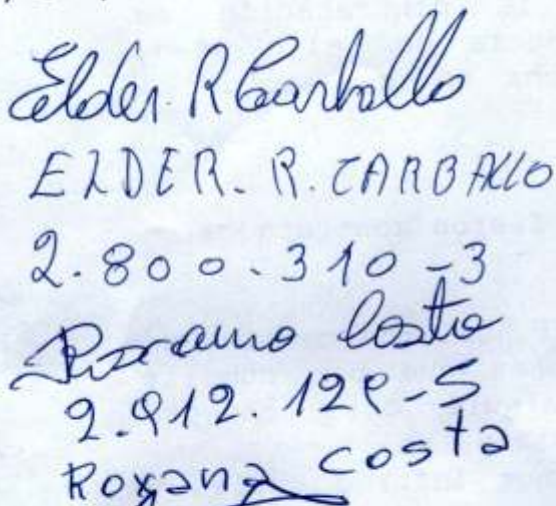 Elder. R Carballo
ELDER. R. CARBALLO
2.800.310-3
Roxana Costa
2.912.128-5
Roxana Costa